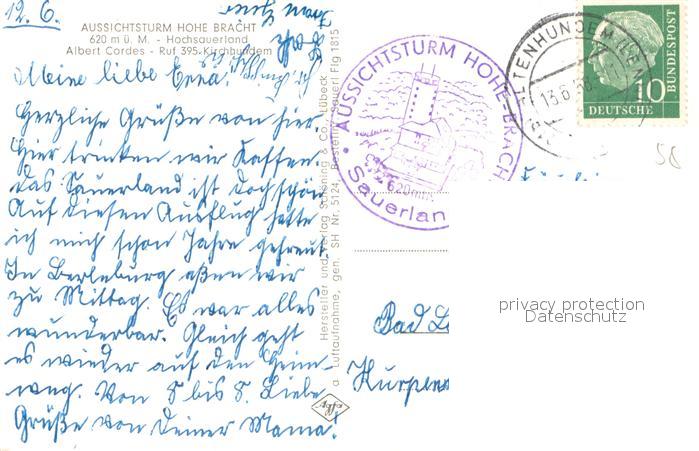 12. 6.
AUSSICHTSTURM HOHE BRACHT
620 m ü. M. - Hochsauerland
Albert Cordes - Ruf 395 Kirchhundem
Meine liebe Erna!
Herzliche Grüße von hier.
Hier trinken wir Kaffee.
Das Sauerland ist doch schön
Auf diesen Ausflug hatte
ich mich schon Jahre gefreut.
In Berleburg aßen wir
zu Mittag. Es war alles
wunderbar. Gleich geht
es wieder auf den Heim-
weg. Von 8 bis 8. Liebe
Grüße von Deiner Mama!
Hersteller und Verlag Schöning & Co., Lübeck
a. Luftaufnahme, gen. SH Nr. 5124, Fig 1815
Agfa
AUSSICHTSTURM HOHE BRACH
620 m
Sauerlan
LTENHUNDEM
13.6.58
DEUTSCHE
BUNDESPOST
10
58
Bad
Kurpen
privacy protection
Datenschutz